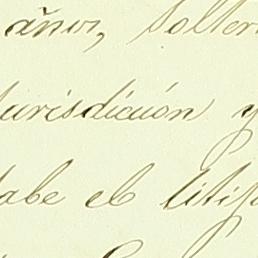 años, solter
jurisdicción y
tabe el litig